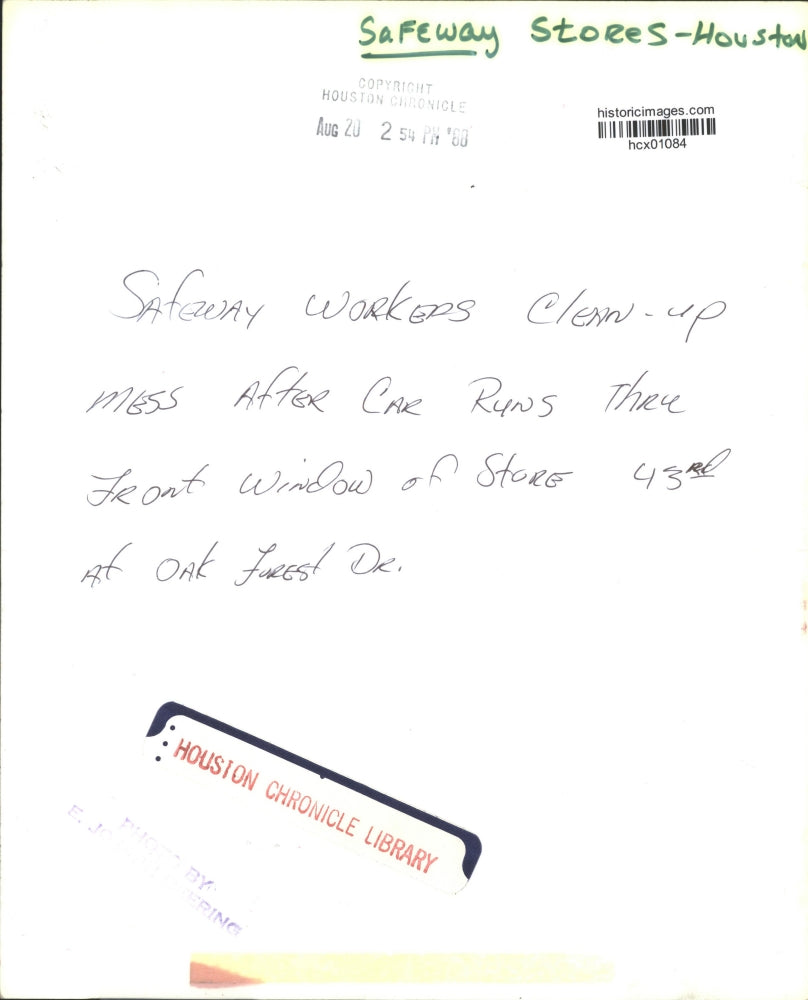 Safeway Stores-Houston
COPYRIGHT
HOUSTON CHRONICLE
Aug 20 2 54 PM '80
historicimages.com
hcx01084
Safeway Workers Clean-up
mess After Car Runs Thru
Front Window of Store 43rd
At Oak Forest Dr.
HOUSTON CHRONICLE LIBRARY
PHOTO BY:
E.